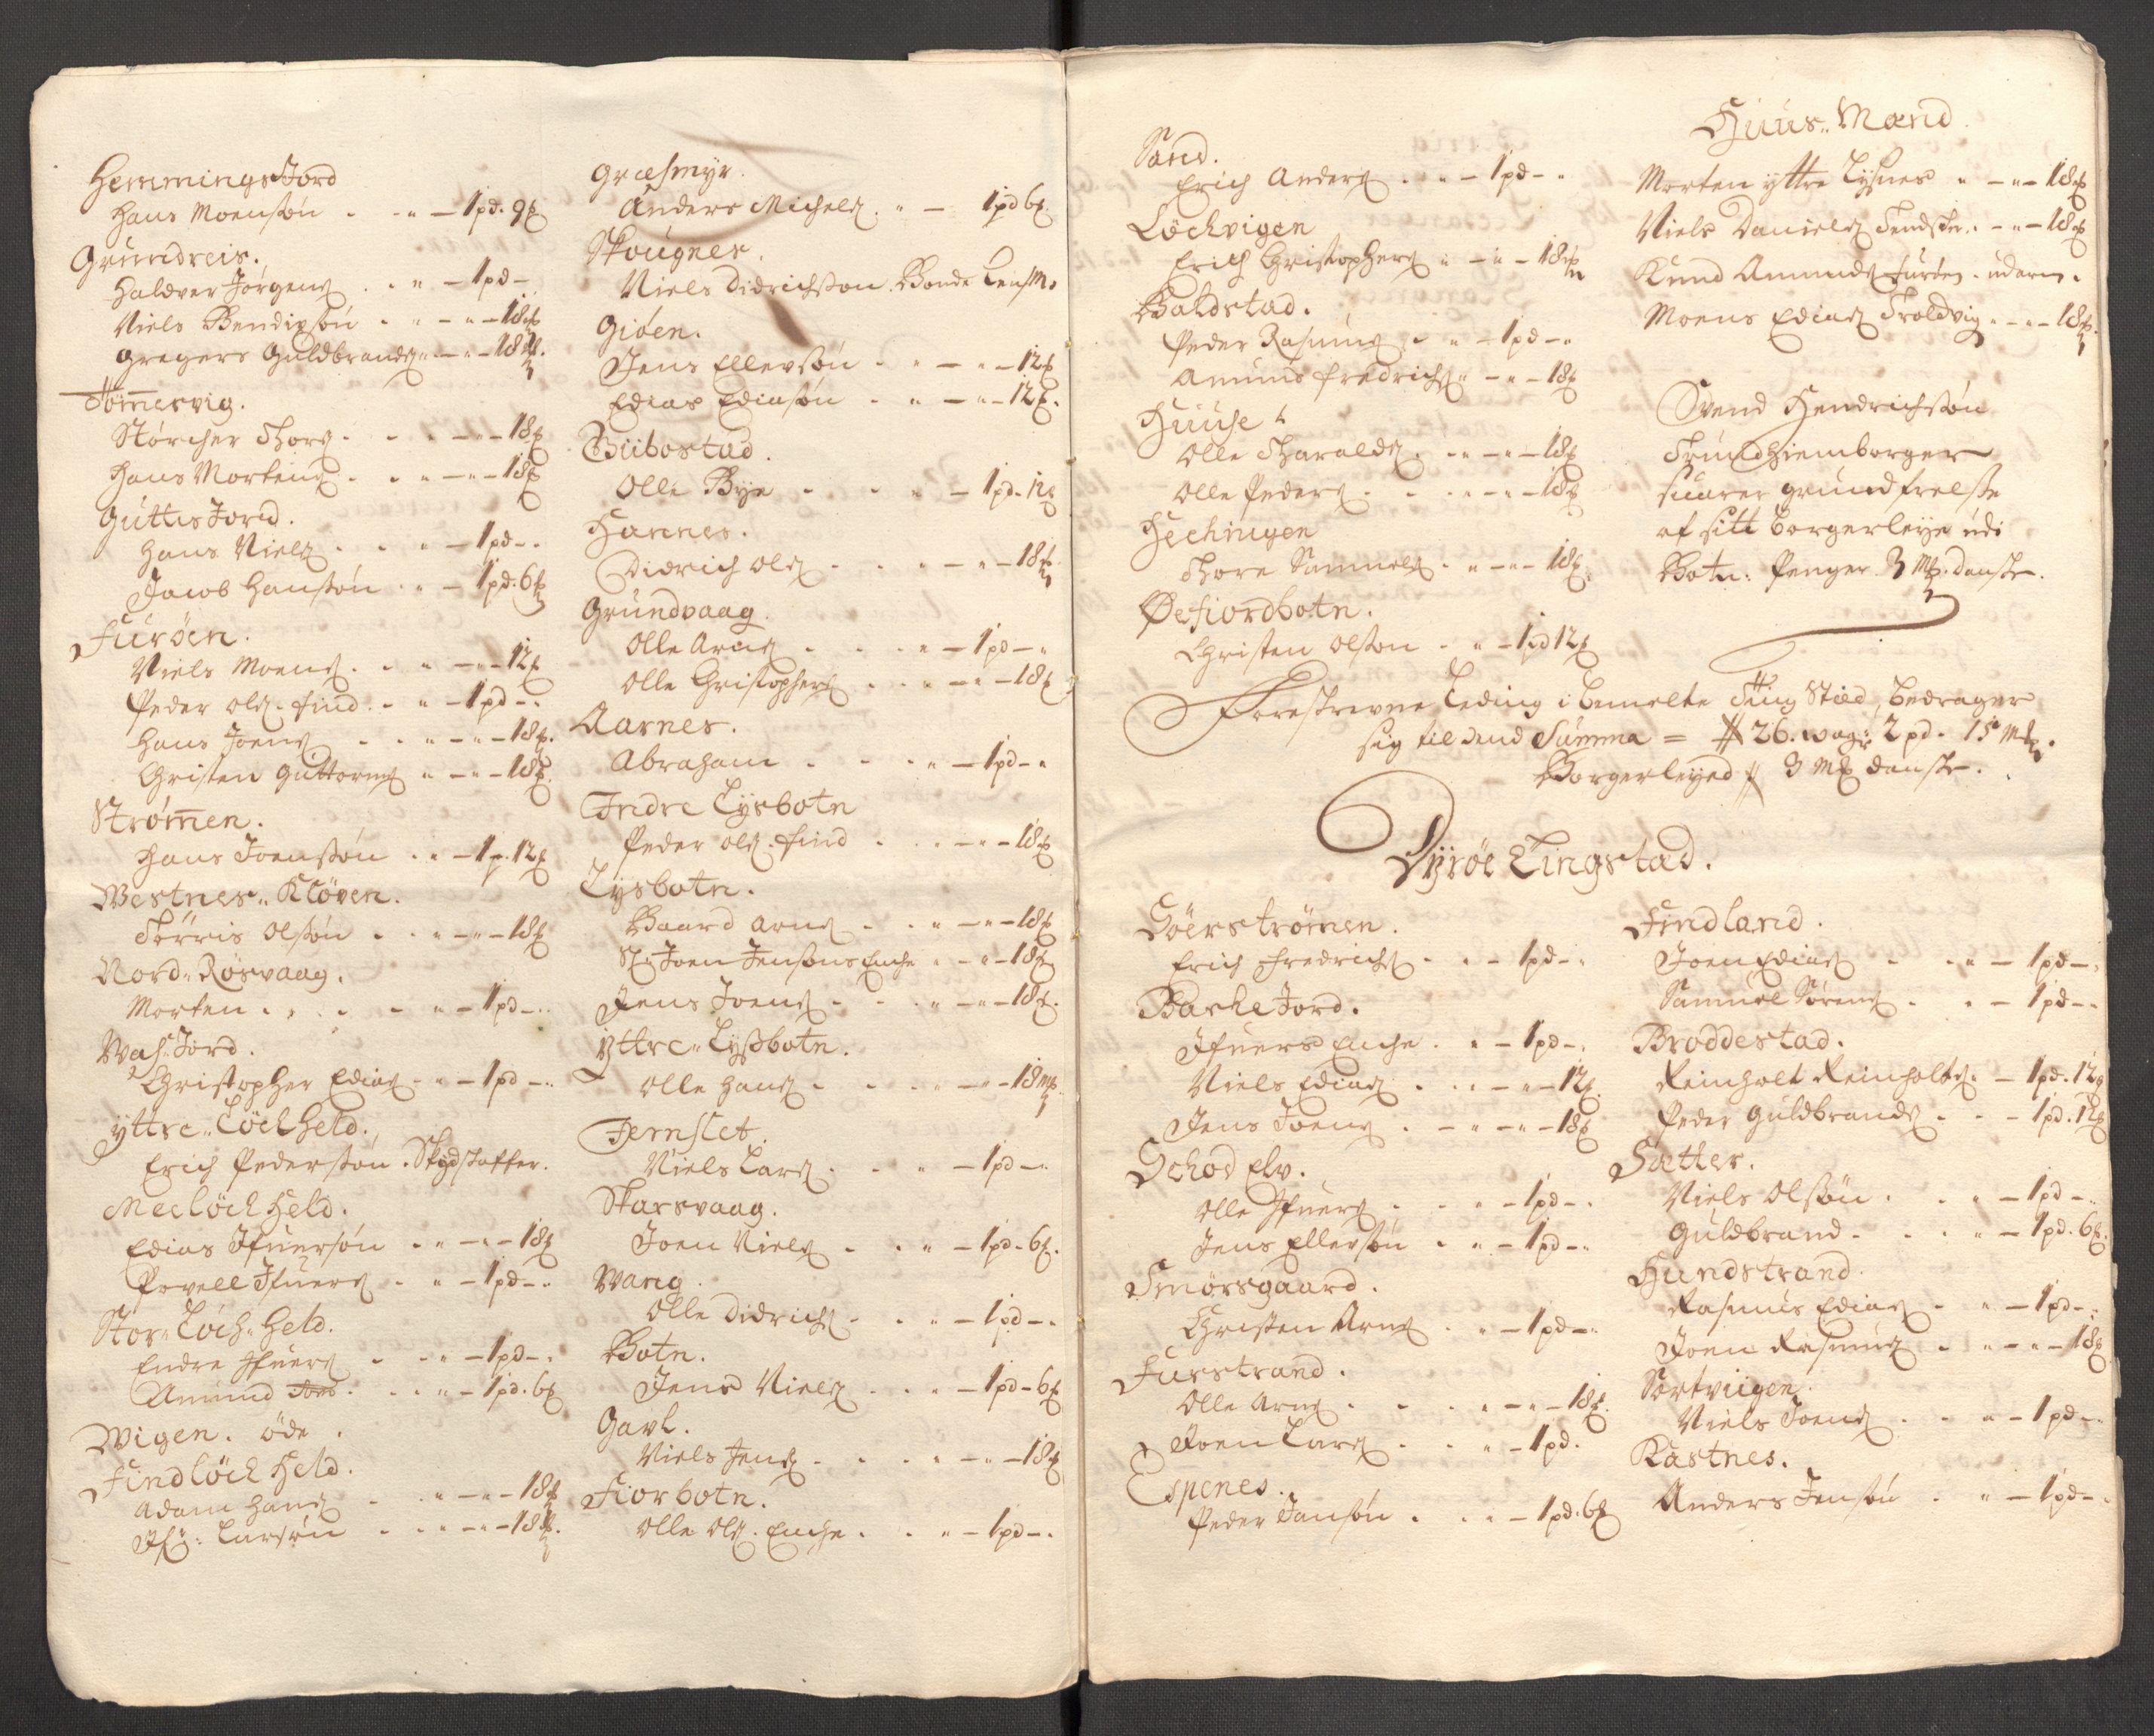 HemmingsJord
Hans Moensøn . . " – 1 pd. 9 ℔
Grundreis.
Haldver Jørgens . . " – 1 pd –
Niels Bendixsøn . " – " – 18 ℔
Gregers Guldbrands " – " – 18 ℔.
Tømmervig.
Størcher Thors . . . – " – 18 ℔
Hans Mortens . . " – " – 18 ℔
GuttisJord.
Hans Niels . . . " – 1 pd – .
Jacob Hansøn . " – 1 pd. 6 ℔
Furøen.
Niels Moens . . " – " – 12 ℔
Peder Ols. find . . " – 1 pd – .
Hans Joens . . " – " – 18 ℔.
Christen Guttorms " – " – 18 ℔.
Strømmen.
Hans Joensøn . . " – 1 p. 12 ℔
Westnes " Kløven.
Tørris Olsøn . . " – " – 18 ℔
Nord " Røsvaag.
Morten . . . . " – 1 pd – .
WasJord.
Christopher Edias . " – 1 pd – .
yttre " Löchheld.
Erich Pedersøn . Skydskaffer.
Mee löch held.
Edias Ifuersøn . " – " – 18 ℔
Povell Ifuers . . " – 1 pd – .
Stor " Löch " held.
Endre Ifuers . . " – 1 pd – .
Amund . . . " – 1 pd. 6 ℔
Wigen. öde .
Findlöch held.
Adam Hans . . " – " – 18 ℔
Larsøn . . " – " – 18 ℔.
Græsmyr.
Anders Michels . " – 1 pd 6 ℔.
Skougnes.
Niels Didrichsøn. Bonde LensM.
Gisen.
Jens Ellevsøn . . " – " – 12 ℔
Edias Ediasøn . . " – " – 12 ℔.
Biibostad.
Olle Bye . . . " – 1 pd. 12 ℔
Hannes.
Didrich Ols . . . " – " – 18 ℔
Grundvaag.
Olle Arns . . . " – 1 pd – "
Olle Christophers . . " – " – 18 ℔
Aarnes.
Abraham . . . " – 1 pd – "
Indre Lysbotn
Peder Ols. find . . " – " – 18 ℔
Lysbotn.
Baard Arns . . " – " – 18 ℔
Sl Joen Jensøns Enche . " – " – 18 ℔
Jens Joens . . . " – " – 18 ℔.
Yttre " Lysbotn.
Olle Hans . . . " – " – 18 ℔.
Jernslet.
Niels Lars . . . " – 1 pd – .
Skarsvaag.
Joen Niels . . " – 1 pd. 6 ℔.
Wang.
Olle Didrichs . . " – 1 pd – .
Botn.
Jens Niels . . . – 1 pd – 6 ℔
Gavl.
Niels Jens . . . " – " – 18 ℔
Fiorbotn.
Olle Ols. Enche . . " – 1 pd – .
Sand.
Erich Anders . . " – 1 pd – "
Löchvigen
Erich Christophers " – " – 18 ℔
Baldstad.
Peder Rasmus . " – 1 pd – "
Amund fredrichs " – " – 18 ℔
Huuse
Olle Tharalds . . " – " – 18 ℔
Olle Peders . . . " – " – 18 ℔
Hechingen
Thore Samuels . " – " – 18 ℔
Øefiordbotn.
Christen Olsøn . " – 1 pd 12 ℔
Huus " Mænd
Morten yttre Lysnes " – " – 18 ℔
Niels Daniels . " – 18 ℔
Knud Amunds Furøen . udarm .
Moens Edias Troldvig . " – " – 18 ℔.
Svend Hendrichsøn
Trundhiemborger
suarer grund frelsse
af sitt borgerleye udi
Botn: Penger 3 Mk. danske.
Foreskrevne Leding i bemelte Ting Stæd, bedrager
sig til dend Summa = 26. wog: 2 pd. 15 Mk.
Borgerleyed 3 Mk danske.
Dyrøe Tingstad.
Söerstrømen.
Erich fredrichs . . – 1 pd – .
BarkeJord.
Ifuers Enche . " – 1 pd – .
Niels Edias . . " – " – 12 ℔.
Jens Joens . – " – " – 18 ℔
Schod Elv.
Olle Ifuers . . " – 1 pd – .
Jens Ellersøn . " – 1 pd – "
Smörsgaard.
Christen Arns . " – 1 pd – .
Furstrand.
Olle Arns . . . " – " – 18 ℔.
Joen Lars . . . " – 1 pd.
Espenes.
Peder Jansøn . . " – 1 pd. 6 ℔
Findland.
Joen Edias . . " – 1 pd – .
Samuel Sørens . . – 1 pd – .
Broddestad.
Reinholt Reinholts . – 1 pd. 12 ℔
Peder Guldbrands . – 1 pd. 12 ℔
Sætter.
Niels Olsøn . . " – 1 pd – .
Guldbrand . . . " – 1 pd. 6 ℔.
Hundstrand
Rasmus Edias . " – 1 pd – .
Joen Rasmus . . " – " – 18 ℔
Sortviigen.
Niels Joens . . " – 1 pd – "
Kastnes.
Anders Jensøn . " – 1 pd – .